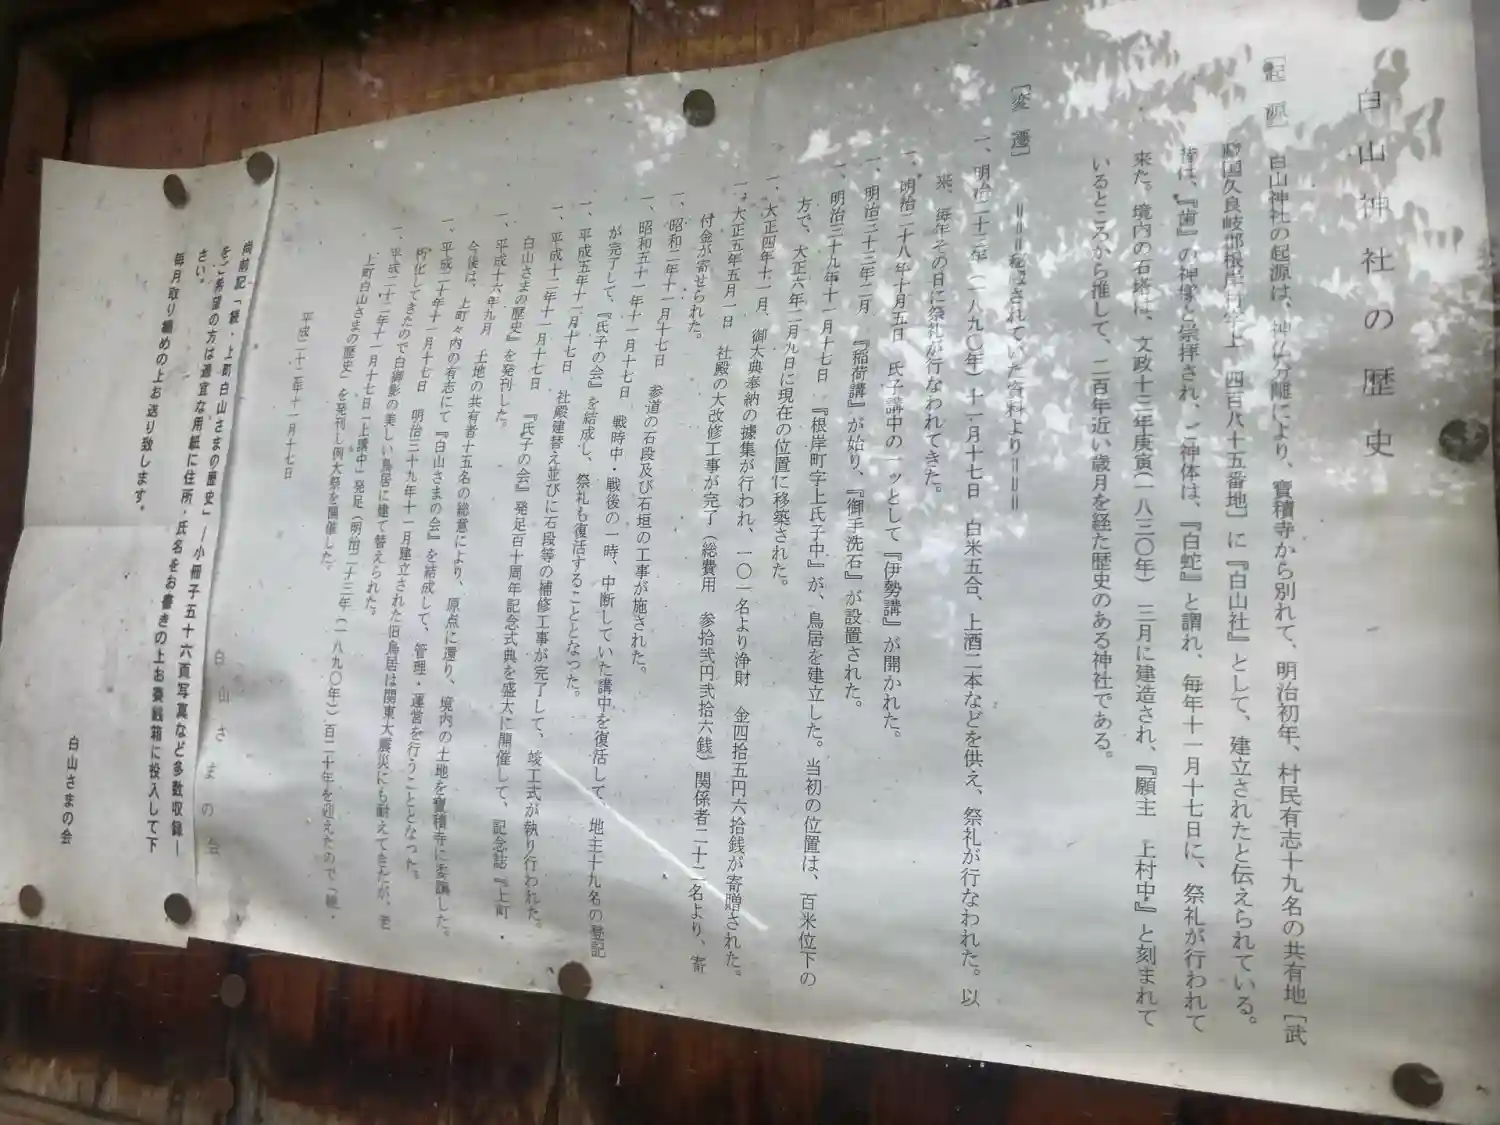 白山神社の歴史
［起源］
白山神社の起源は、神仏分離により、寶積寺から別れて、明治初年、村民有志十九名の共有地［武
蔵国久良岐郡根岸村字上 四百八十五番地］に『白山社』として、建立されたと伝えられている。
昔は、『歯』の神様と崇拝され、ご神体は、『白蛇』と謂れ、毎年十一月十七日に、祭礼が行われて
来た。境内の石塔は、文政十三年庚寅（一八三〇年） 三月に建造され、『願主 上村中』と刻まれて
いるところから推して、二百年近い歳月を経た歴史のある神社である。
［変遷］ ＝＝＝秘蔵されていた資料より＝＝＝
一、明治二十三年（一八九〇年）十一月十七日 白米五合、上酒二本などを供え、祭礼が行なわれた。以
来、毎年その日に祭礼が行なわれてきた。
一、明治二十八年十月五日 氏子講中の一ッとして『伊勢講』が開かれた。
一、明治三十三年二月 『稲荷講』が始り、『御手洗石』が設置された。
一、明治三十九年十一月十七日 『根岸町字上氏子中』が、鳥居を建立した。当初の位置は、百米位下の
方で、大正六年二月九日に現在の位置に移築された。
一、大正四年十一月、御大典奉納の據集が行われ、一〇一名より浄財 金四拾五円六拾銭が寄贈された。
一、大正五年五月一日 社殿の大改修工事が完了（総費用 参拾弐円弐拾六銭）関係者二十二名より、寄
付金が寄せられた。
一、昭和二年十一月十七日 参道の石段及び石垣の工事が施された。
一、昭和五十一年十一月十七日 戦時中・戦後の一時、中断していた講中を復活して、地主十九名の登記
が完了して、『氏子の会』を結成し、祭礼も復活することとなった。
一、平成五年十一月十七日 社殿建替え並びに石段等の補修工事が完了して、竣工式が執り行われた。
一、平成十二年十一月十七日 『氏子の会』発足百十周年記念式典を盛大に開催して、記念誌『上町・
白山さまの歴史』を発刊した。
一、平成十六年九月 土地の共有者十五名の総意により、原点に還り、境内の土地を寶積寺に委譲した。
今後は、上町々内の有志にて『白山さまの会』を結成して、管理・運営を行うこととなった。
一、平成二十年十一月十七日 明治三十九年十一月建立された旧鳥居は関東大震災にも耐えてきたが、老
朽化してきたので白御影の美しい鳥居に建て替えられた。
一、平成二十二年十一月十七日「上講中」発足（明治二十三年（一八九〇年））百二十年を迎えたので「続・
上町白山さまの歴史」を発刊し例大祭を開催した。
平成二十二年十一月十七日
白山さまの会
尚前記「続・上町白山さまの歴史」―小冊子五十六頁写真など多数収録―
をご希望の方は適宜な用紙に住所・氏名をお書きの上お賽銭箱に投入して下
さい。
毎月取り纏めの上お送り致します。
白山さまの会